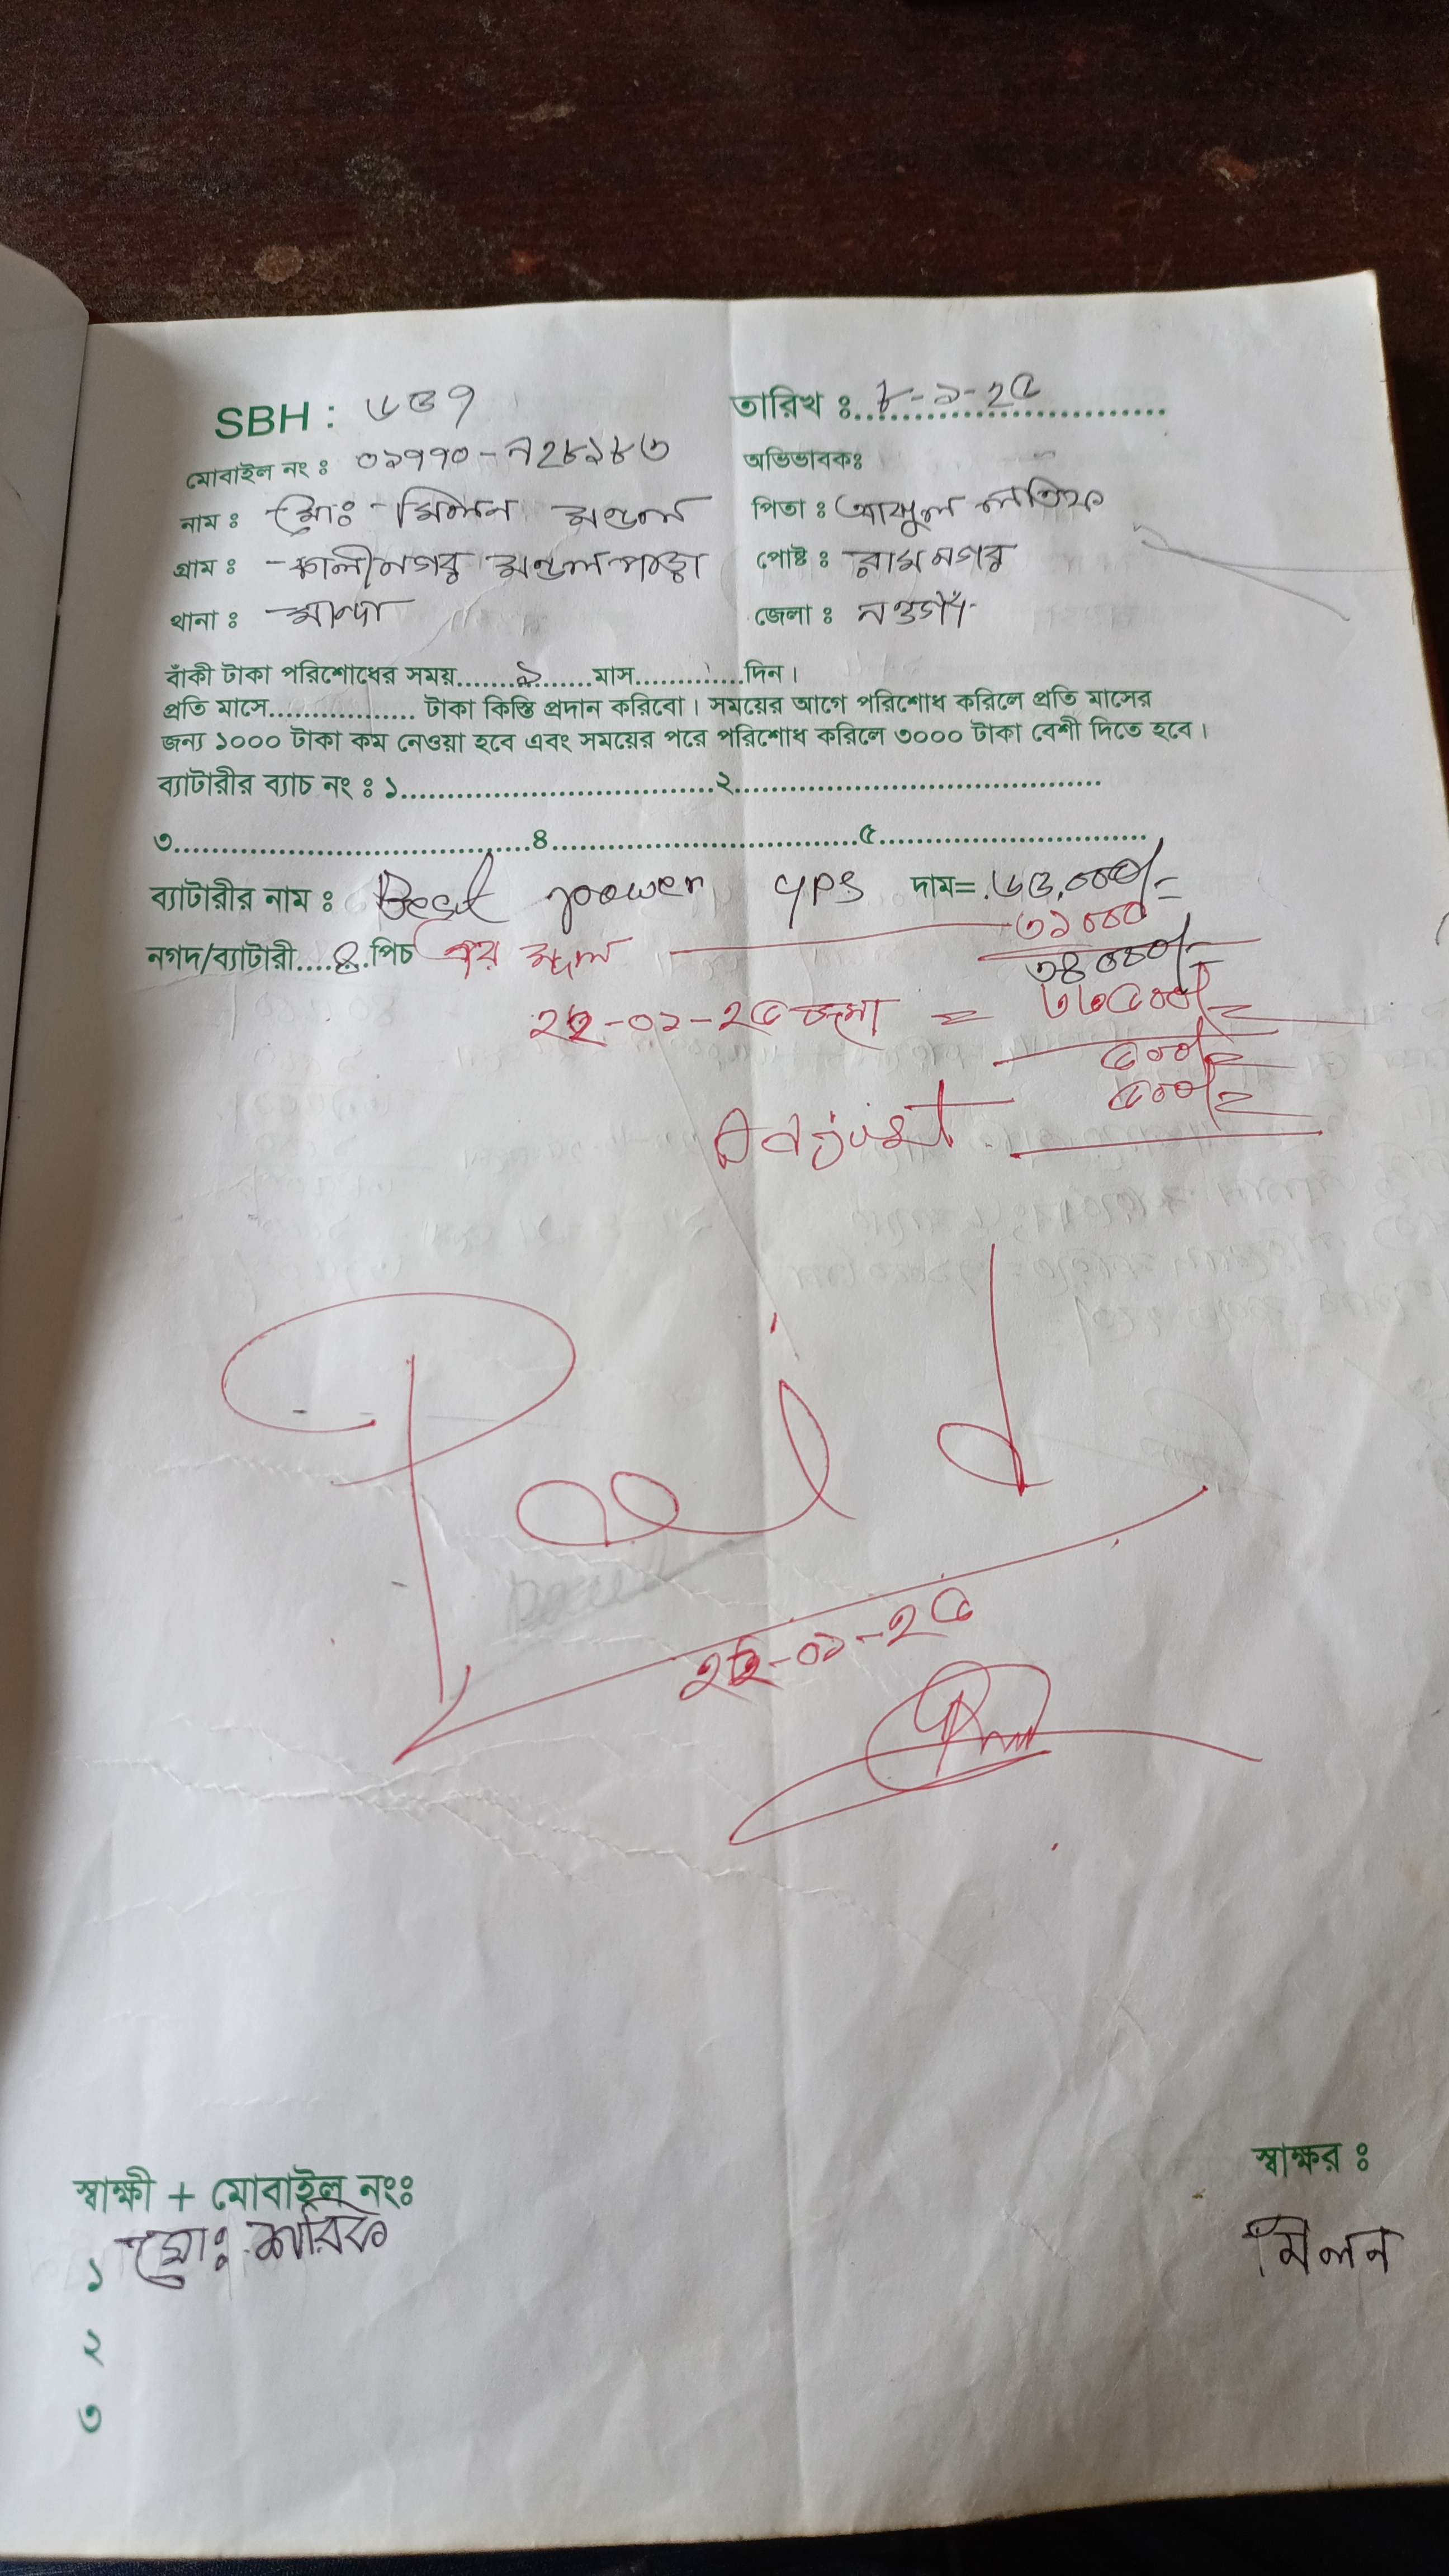 SBH : ৬৩৭ তারিখ ঃ ৮-১-২৫
মোবাইল নং ঃ ০১৭৭০-৭২৮১৮৩ অভিভাবকঃ
নাম ঃ মোঃ মিলন মণ্ডল পিতা ঃ আব্দুল লতিফ
গ্রাম ঃ কালীনগর মণ্ডল পাড়া পোষ্ট ঃ রামনগর
থানা ঃ মান্দা জেলা ঃ নওগাঁ
বাঁকী টাকা পরিশোধের সময়........১........মাস............দিন।
প্রতি মাসে................. টাকা কিস্তি প্রদান করিবো। সময়ের আগে পরিশোধ করিলে প্রতি মাসের
জন্য ১০০০ টাকা কম নেওয়া হবে এবং সময়ের পরে পরিশোধ করিলে ৩০০০ টাকা বেশী দিতে হবে।
ব্যাটারীর ব্যাচ নং ঃ ১..................................২......................................
৩......................................৪..................................৫..............................
ব্যাটারীর নাম ঃ Best power 4PS দাম=
৩১০০০
নগদ/ব্যাটারী....৪..পিচ এর মূল্য ৩৪০০০/=
২২-০১-২৫ জমা = ৩৩৫০০/=
৫০০/=
Adjust ৫০০/=
Paid
২২-০১-২৫
স্বাক্ষী + মোবাইল নংঃ স্বাক্ষর ঃ
১ মোঃ মিলন
২
৩